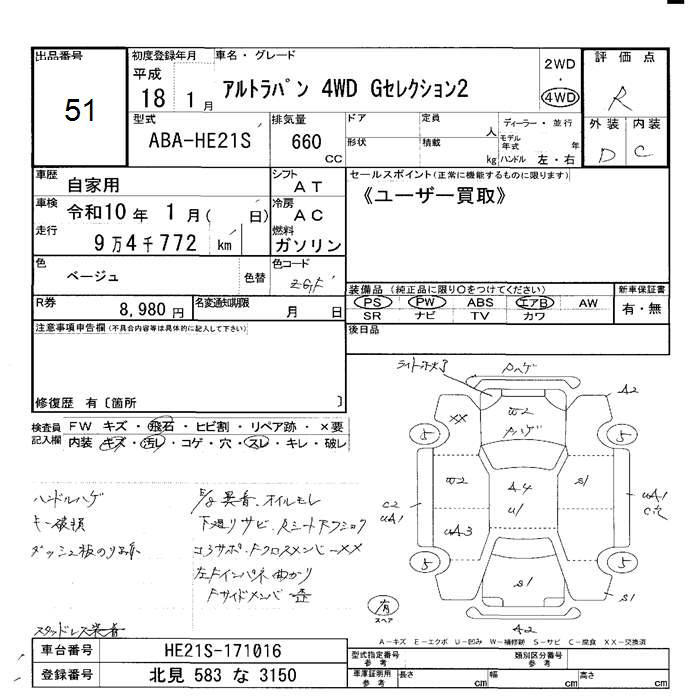 出品番号
51
初度登録年月
平成
18 1 月
車名・グレード
アルトラパン 4WD Gセレクション2
2WD
・
4WD
評価点
R
外装 内装
D C
型式
ABA-HE21S
排気量
660
CC
ドア
定員
人
形状
積載
kg
ディーラー・並行
モデル
年式 年
ハンドル 左・右
車歴
自家用
シフト
AT
車検
令和10年 1月( 日)
冷房
AC
走行
9万4千772 km
燃料
ガソリン
セールスポイント(正常に機能するものに限ります)
《ユーザー買取》
色
ベージュ
色替
色コード
ZGF
装備品 (純正品に限り〇をつけてください)
PS PW ABS エアB AW
SR ナビ TV カワ
新車保証書
有・無
R券
8,980 円
名変通知期限
月 日
注意事項申告欄(不具合内容等は具体的に記入して下さい)
後日品
修復歴 有 〔箇所 〕
検査員
記入欄
FW キズ・飛石・ヒビ割・リペア跡・×要
内装 キズ・汚レ・コゲ・穴・スレ・キレ・破レ
ハンドルハゲ
キー破損
スタッドレス装着
下廻りサビ
コアサポ・FクロスメンバーXX
左Fインパネ曲がり
ハゲ
A2
XX
W2
ハゲ
5
5
W2
A4
U1
S1
C2
UA1
UA3
UA1
C穴
5
5
S1
S1
有
スペア
A2
A-キズ E-エクボ U-凹み W-補修跡 S-サビ C-腐食 XX-交換済
車台番号
HE21S-171016
登録番号
北見 583 な 3150
型式指定番号
参考
類別区分番号
参考
車庫証明用
参考
長さ cm
幅 cm
高さ cm